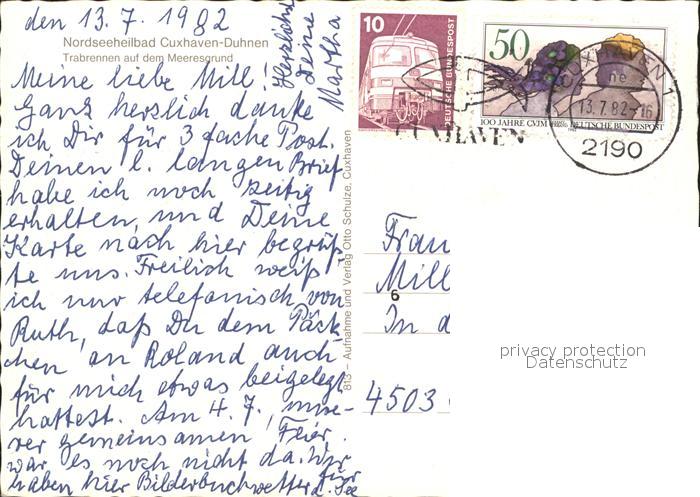 den 13.7.1982
Nordseeheilbad Cuxhaven-Duhnen
Trabrennen auf dem Meeresgrund
Meine liebe Mill!
Ganz herzlich danke
ich Dir für 3 fache Post.
Deinen l. langen Brief
habe ich noch zeitig
erhalten, und Deine
Karte nach hier begrüß-
te uns. Freilich weiß
ich nur telefonisch von
Ruth, daß Du dem Päck-
chen an Roland auch
für mich etwas beigelegt
hattest. Am 4.7., unse-
rer gemeinsamen Feier
war es noch nicht da. Wir
haben hier Bilderbuchwetter
Herzlichst
Deine
Martha
813 – Aufnahme und Verlag Otto Schulze, Cuxhaven
10
DEUTSCHE BUNDESPOST
50
100 JAHRE CVJM
DEUTSCHE BUNDESPOST
CUXHAVEN
CUXHAVEN 1
ne
13.7.82-16
2190
Frau
Mill
6
In d
4503
privacy protection
Datenschutz